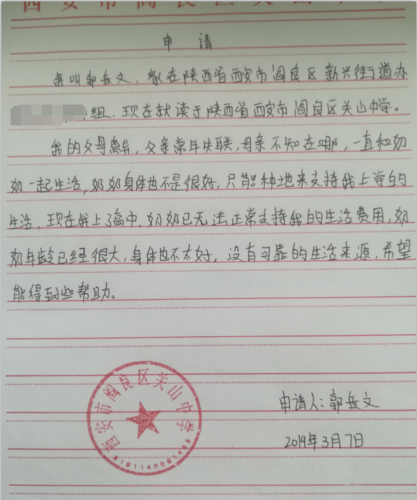 申请
我叫郭岳文，家在陕西省西安市阎良区新兴街道办
组，现在就读于陕西省西安市阎良区关山中学。
我的父母离异，父亲常年失联，母亲不知在哪，一直和奶
奶一起生活，奶奶身体也不是很好，只能种地来支持我上学的
生活，现在我上了高中，奶奶已无法正常支持我的生活费用，奶
奶年龄已经很大，身体也不太好，没有可靠的生活来源，希望
能得到些帮助。
西安市阎良区关山中学
申请人：郭岳文
2019年3月7日